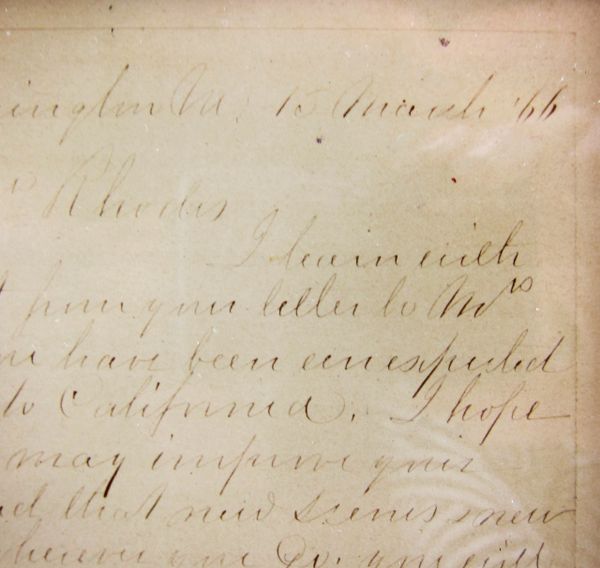 ington Va 15 March '66
Rhodes
I learn with
from your letter to Mrs
have been unexpected
to California. I hope
may improve your
that new scenes & new
wherever you Go. you will